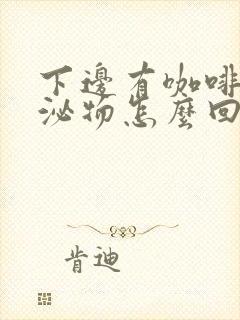 下邊有咖啡
泌物怎麼回
肯迪